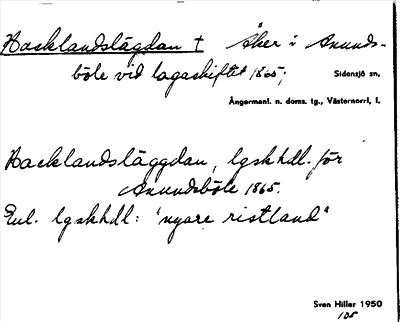 Hacklandslägdan † Åker i Anunds-
böle vid lagaskiftet 1865;
Sidensjö sn.
Ångermanl. n. doms. tg., Västernorrl, l.
Hacklandsläggdan, lgskhdl. för
Anundsböle 1865.
Enl. lgskhdl: "nyare ristland"
Sven Hiller 1950
108